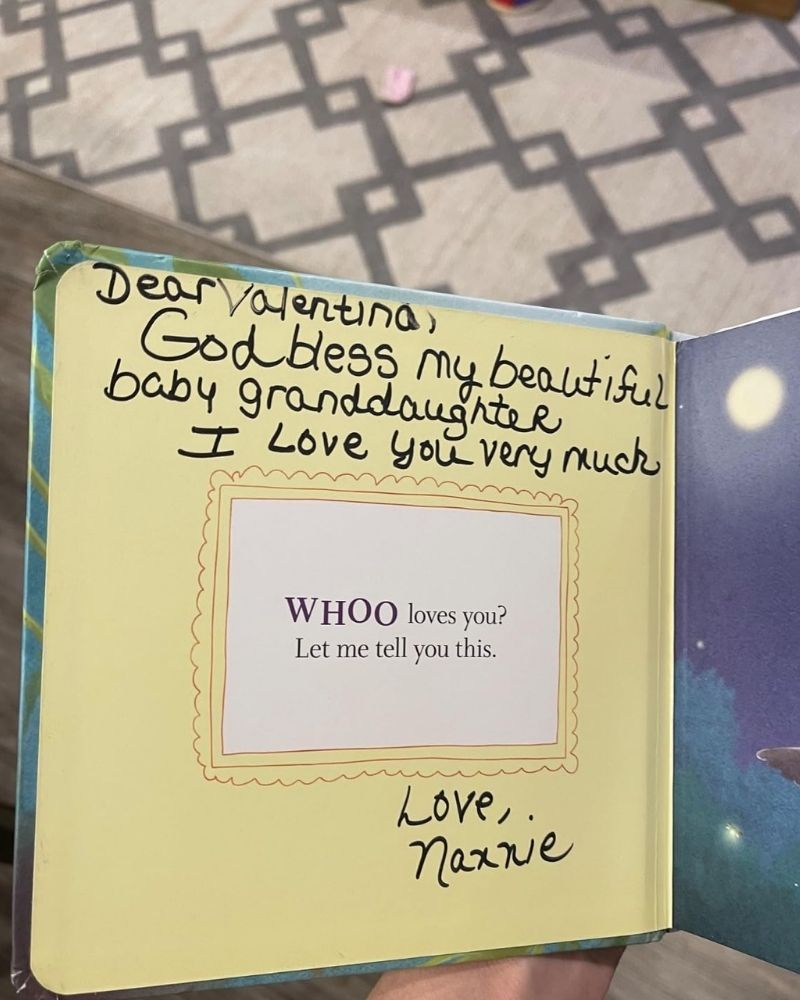 Dear Valentina,
God bless my beautiful
baby granddaughter
I Love you very much
WHOO loves you?
Let me tell you this.
Love,.
Nannie